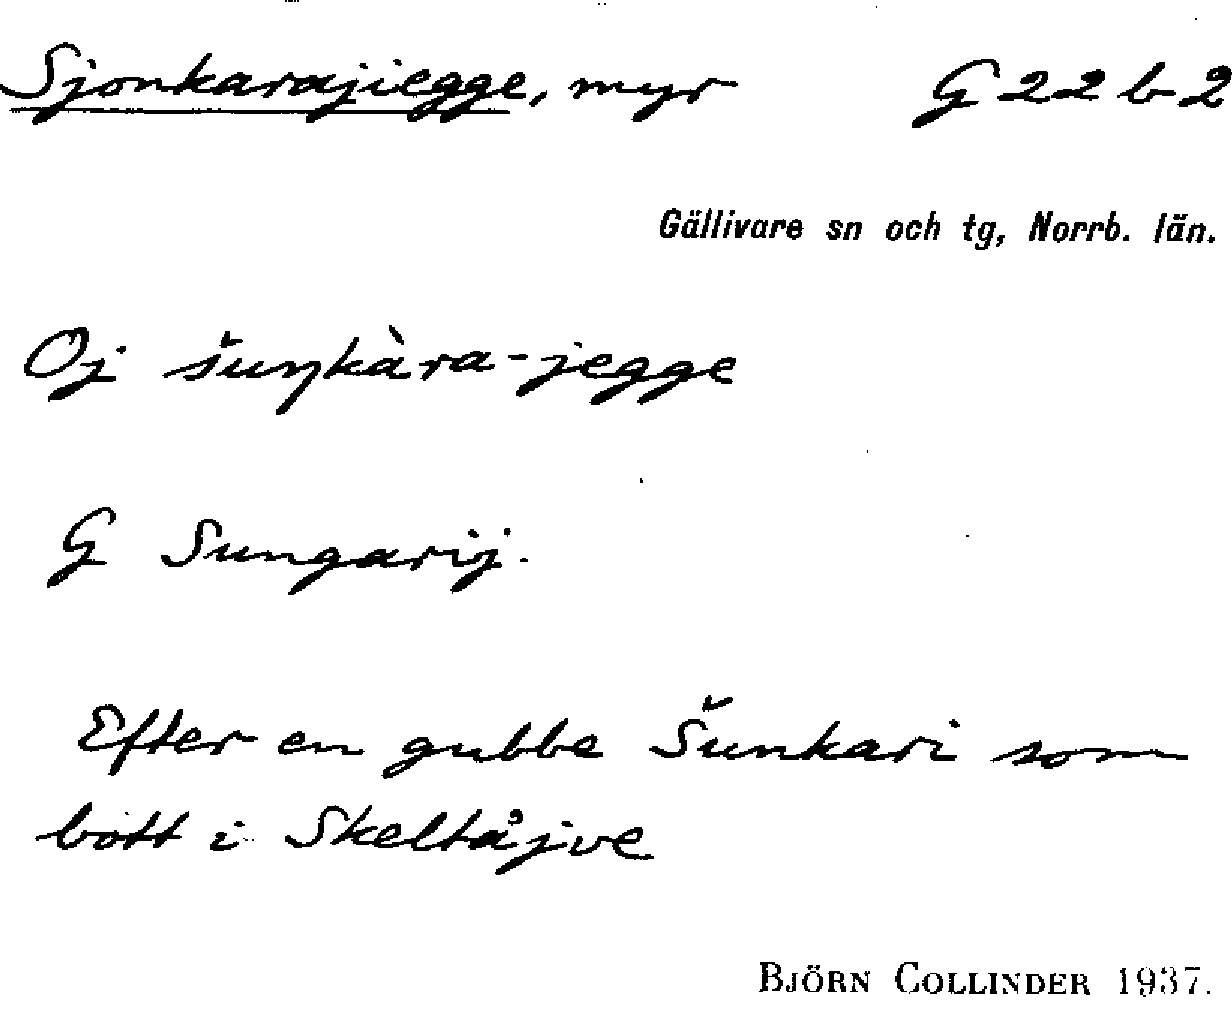 Sjonkarajiegge, myr G 22 b 2
Gällivare sn och tg, Norrb. län.
Oj šuŋkàra-jegge
G Sungarij.
Efter en gubbe Šunkari som
bott i Skeltåjve
BJÖRN COLLINDER 1937.